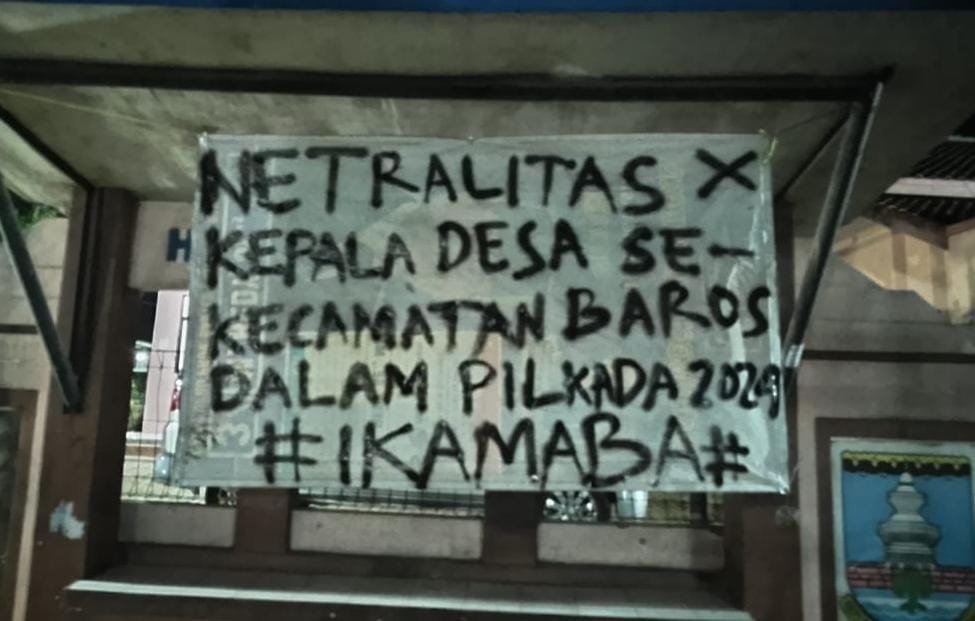 NETRALITAS X
KEPALA DESA SE-
KECAMATAN BAROS
DALAM PILKADA 2024
#IKAMABA#